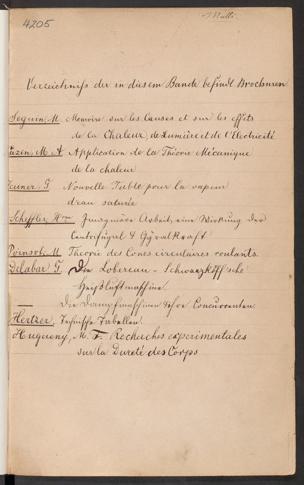 4205
Verzeichniss der in diesem Bande befindl. Brochuren
Seguin, M. Memoire sur les Causes et sur les effets
de la Chaleur, de Lumière et de l'Electricité
M. A. Application de la Théorie Mécanique
de la chaleur
Zeuner, G. Nouvelle Table pour la vapeur
d'eau saturée
Scheffler, Imaginäre Arbeit, eine Wirkung der
Centrifugal & Gyralkraft
Poinsot, M. Theorie des Cones circulaires roulants
Delabar G. Die Lobereau-Schwarzkopff'sche
Heißluftmaschine
— Die Dampfmaschinen Concurrenten
Hertzer, Technische Tabellen
Hugueny, M. F. Recherches experimentales
sur la Dureté des Corps